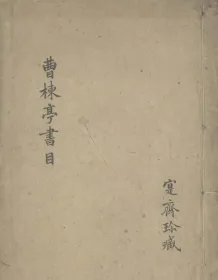 曹棟亭書目
寔齋珍藏